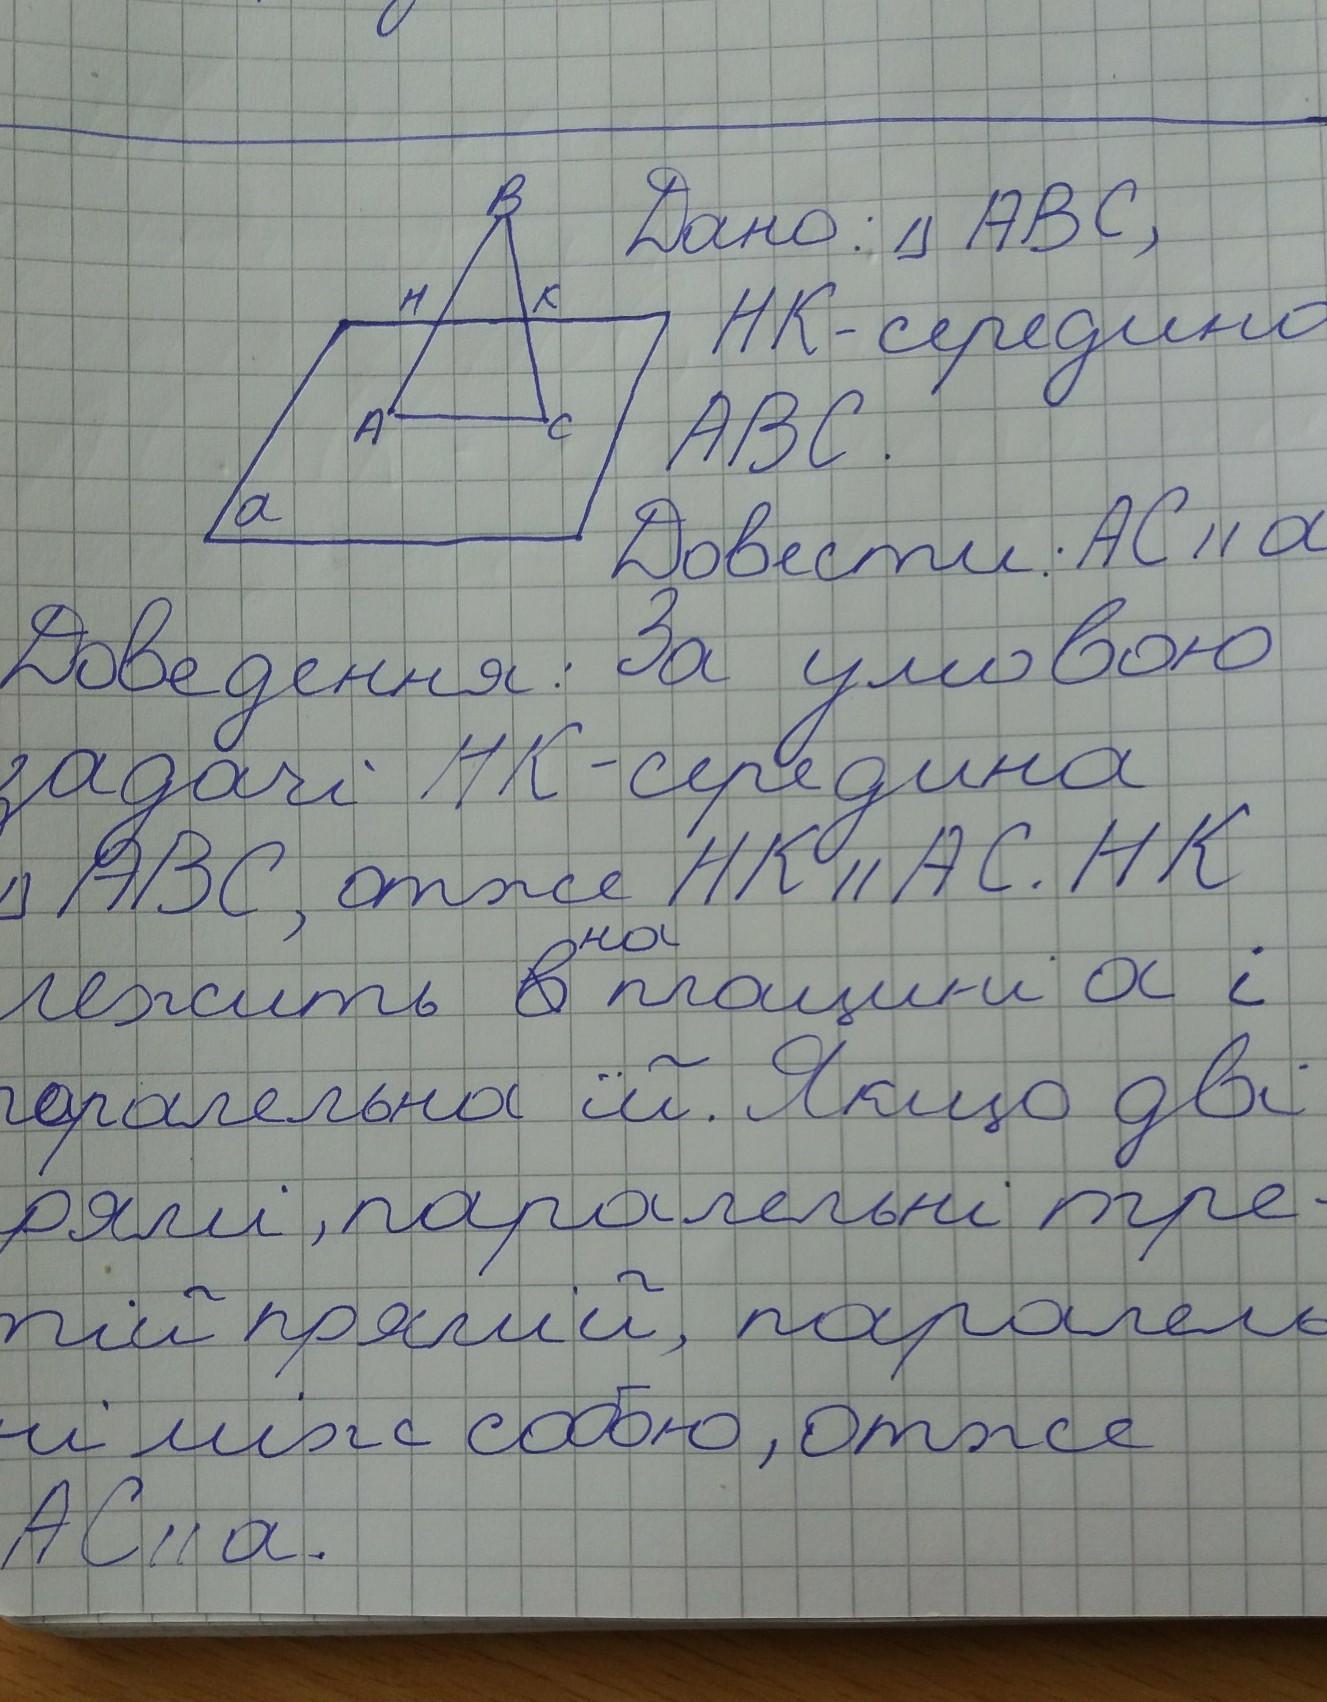 B
Дано: △ ABC,
H K
HK-середина
A C
ABC.
a
Довести: AC || a
Доведення: За умовою
задачі HK-середина
△ ABC, отже HK || AC. HK
лежить в на площині a і
паралельна їй. Якщо дві
рямі, паралельні тре-
тій прямій, паралель
ні між собою, отже
AC || a.